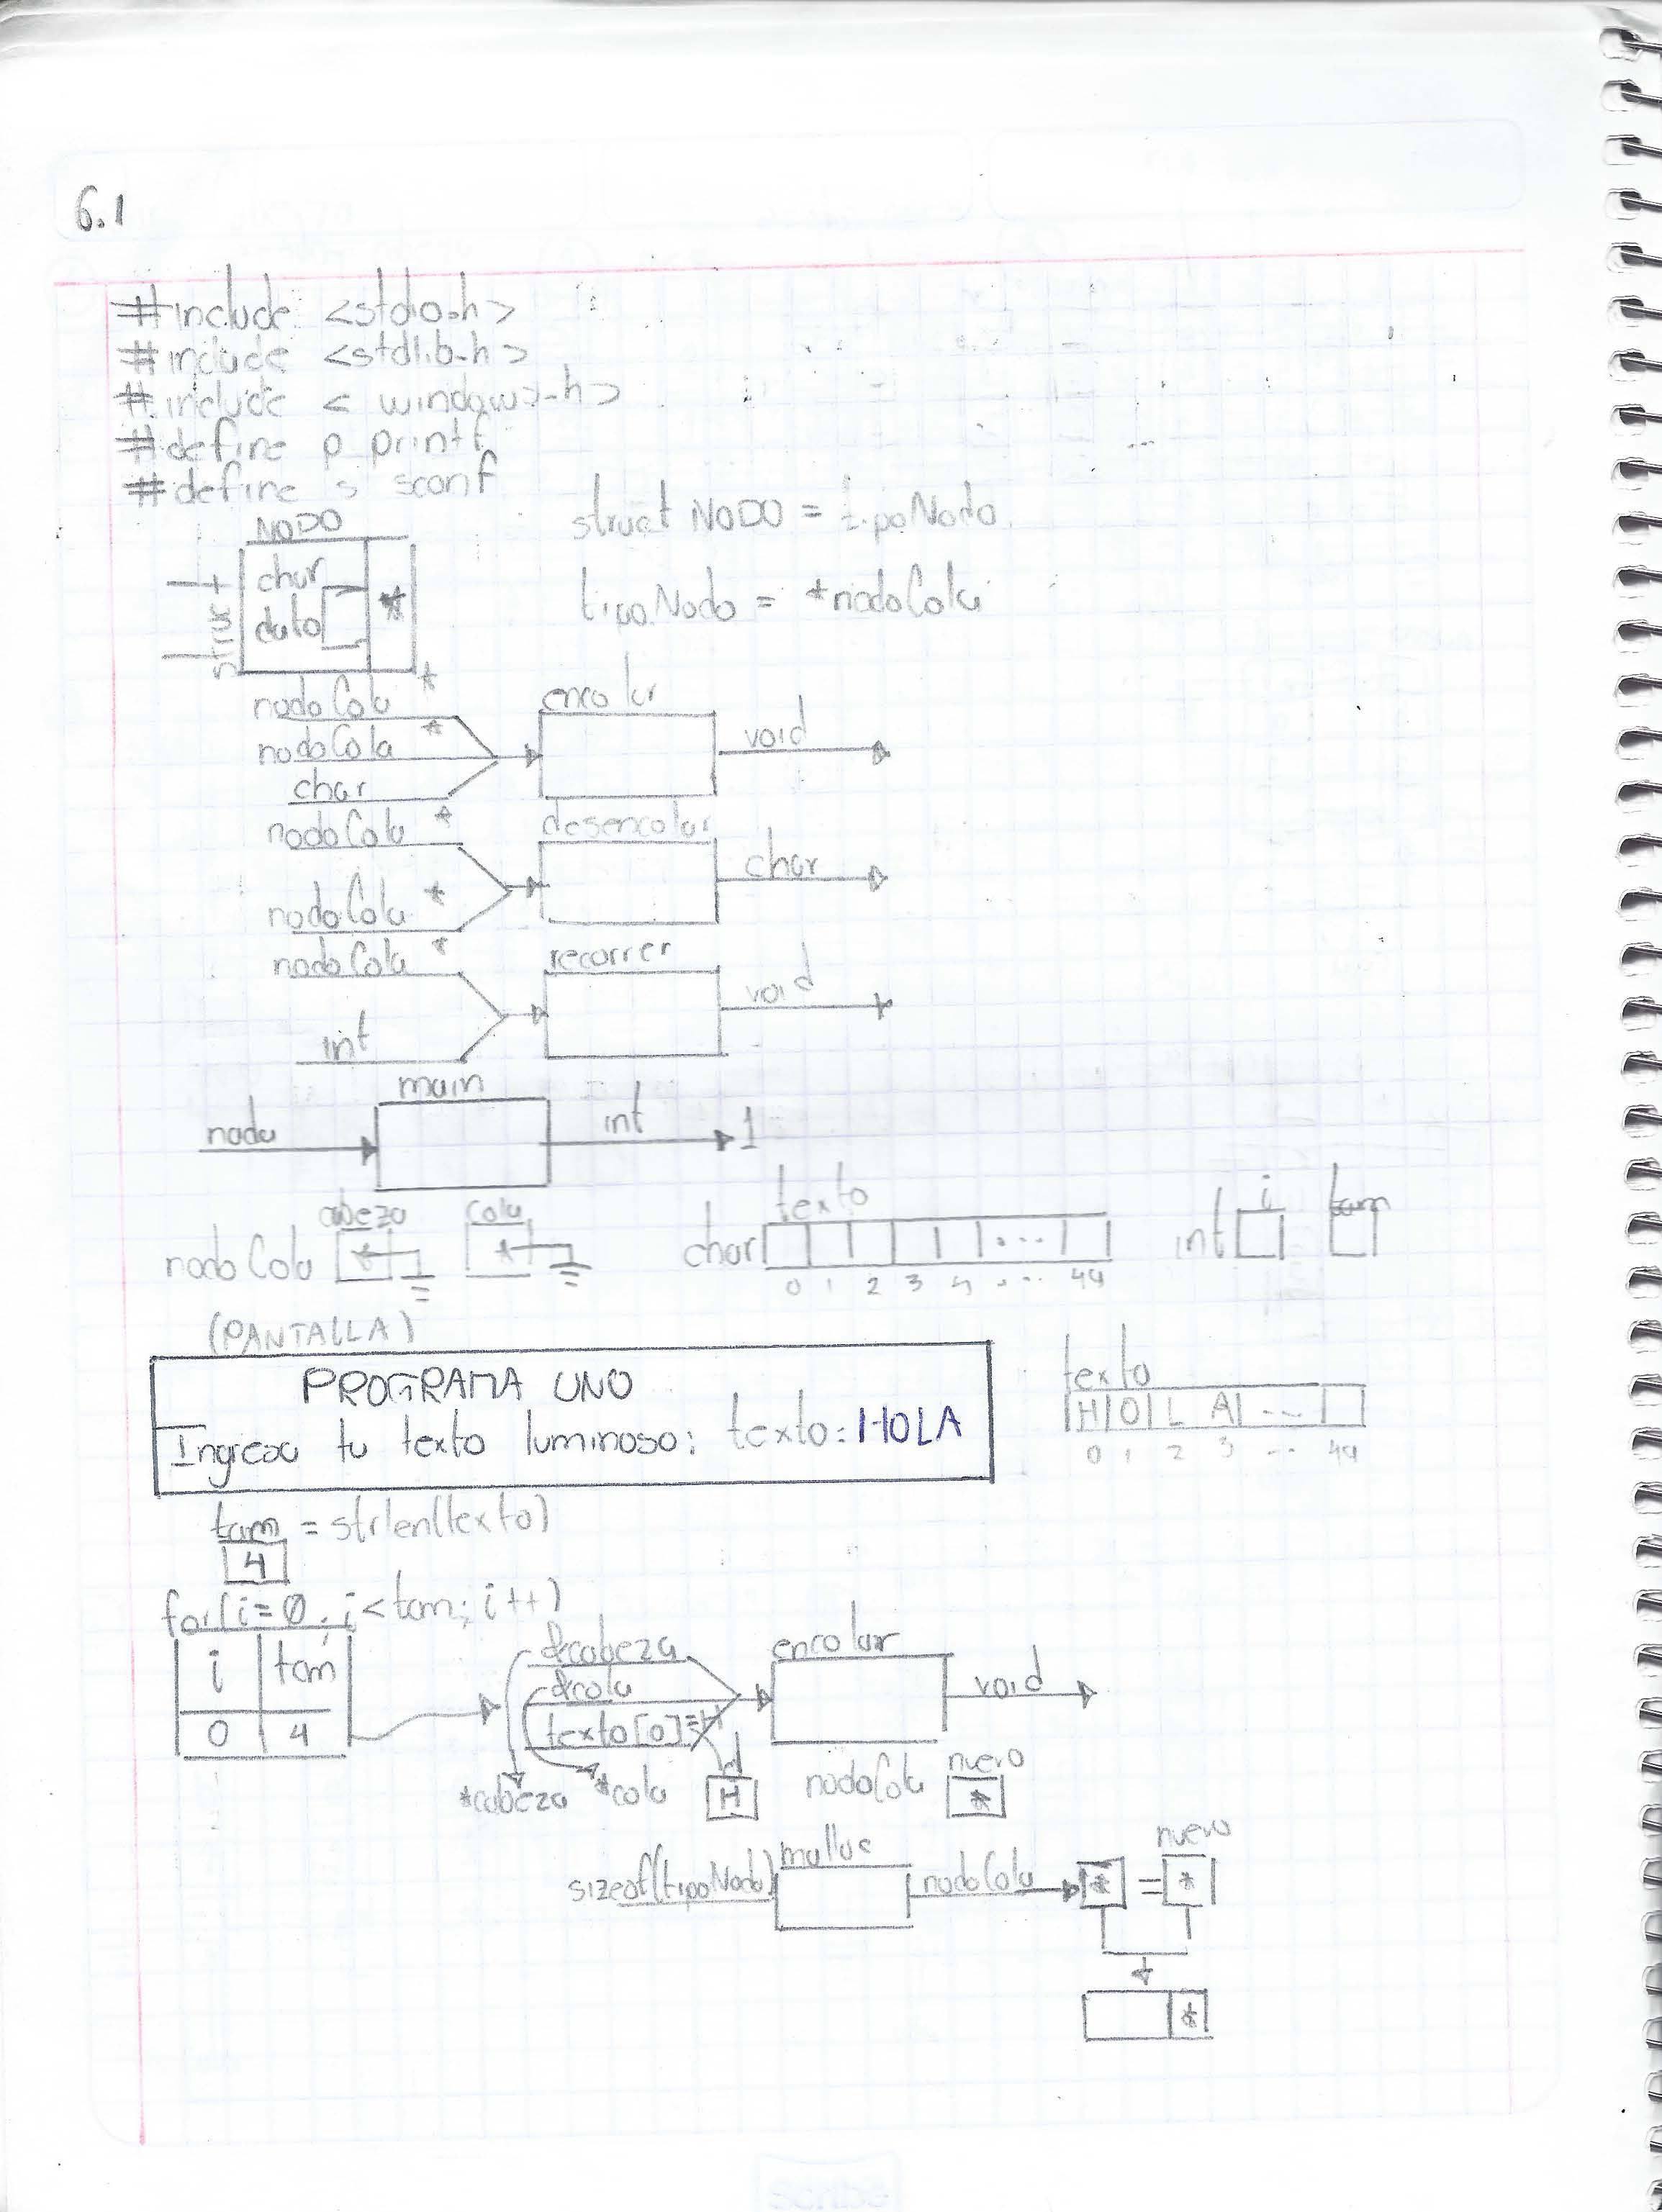 6.1
#include <stdio.h>
#include <stdlib.h>
#include <windows.h>
#define p printf
#define s scanf
NODO
struct
char
dato
*
struct NODO = tipoNodo
tipoNodo = *nodoCola
nodoCola *
nodoCola *
char
encolar
void
nodoCola *
nodoCola *
desencolar
char
nodoCola *
int
recorrer
void
nada
main
int
1
nodoCola
cabeza
cola
char
texto
...
0 1 2 3 4 ... 49
int
i
tam
(PANTALLA)
PROGRAMA UNO
Ingresa tu texto luminoso: texto: HOLA
texto
H O L A ...
0 1 2 3 ... 49
tam = strlen(texto)
4
for(i=0; i<tam; i++)
i tam
0 4
&cabeza
&cola
texto[0]=H
encolar
void
*cabeza
*cola
d
H
nodoCola
nuevo
*
sizeof(tipoNodo)
malloc
nodoCola
* =
nuevo
*
*